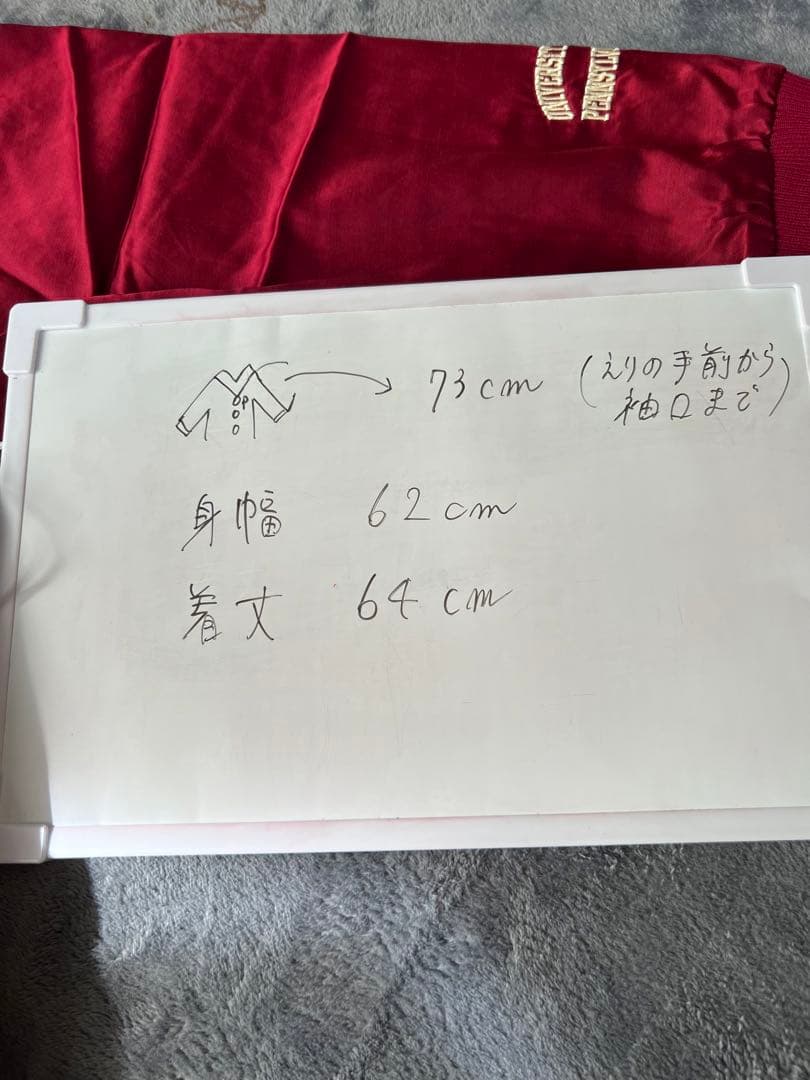 UNIVERSIT
PENNSYLV
73cm (えりの手前から
袖口まで)
身幅 62cm
着丈 64cm